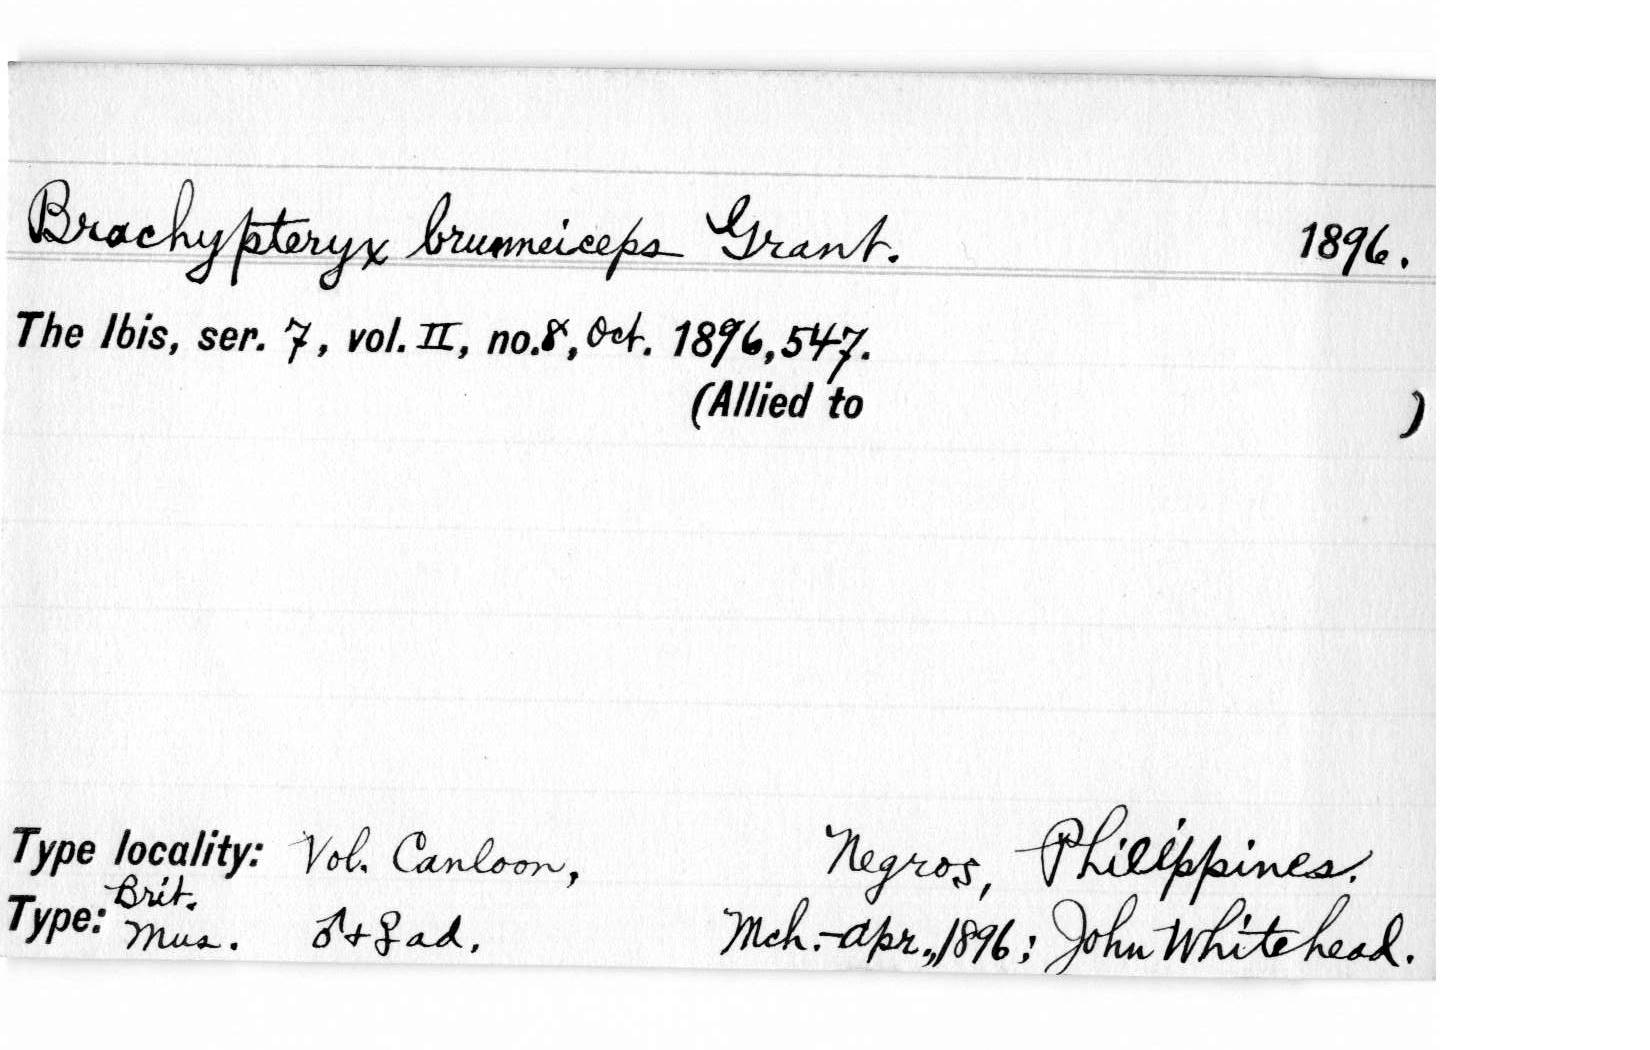 Brachypteryx brunneiceps Grant. 1896.
The Ibis, ser. 7, vol. II, no. 8, Oct. 1896, 547.
(Allied to )
Type locality: Vol. Canloon, Negros, Philippines.
Type: Brit. Mus. ♂ + ♀ ad. Mch.-Apr., 1896; John Whitehead.